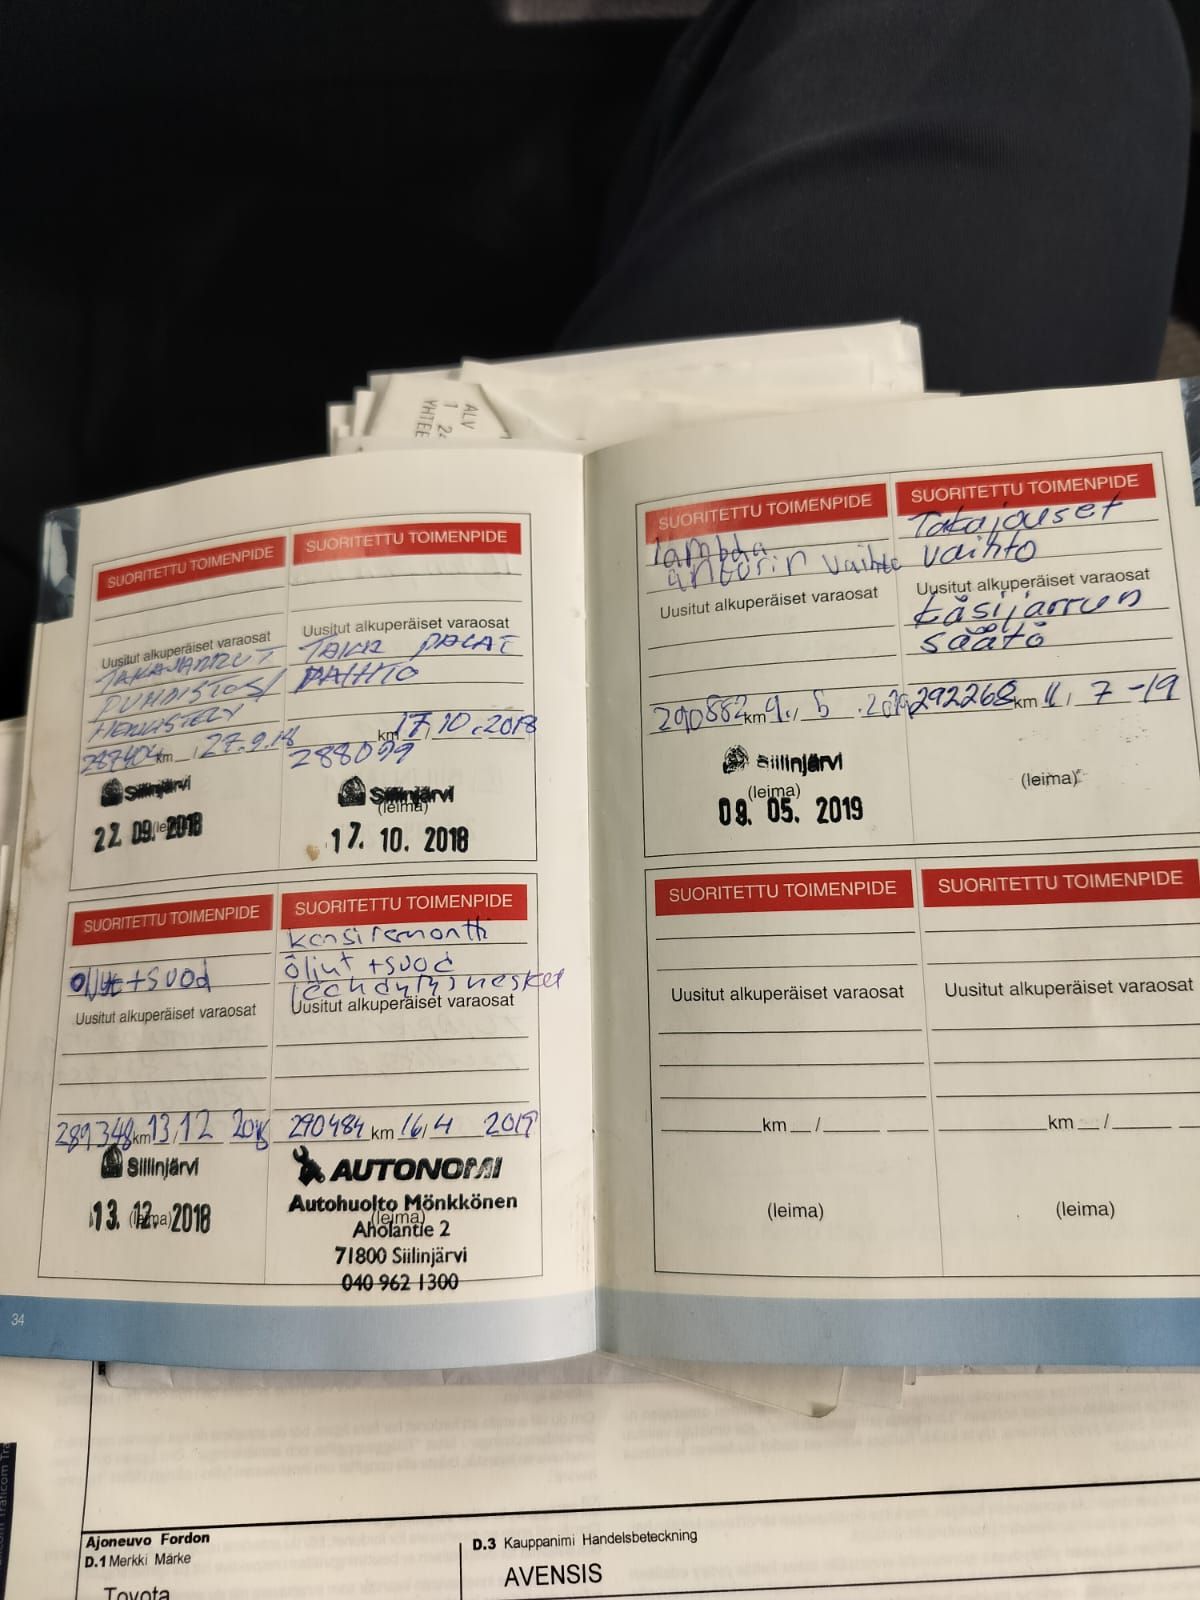 ALV
1 24
YHTEE
SUORITETTU TOIMENPIDE
Uusitut alkuperäiset varaosat
TAKAJARRUT
PUHDISTUS/
HERKISTELY
287404 km 27.9.18
Siilinjärvi
(leima)
27. 09. 2018
SUORITETTU TOIMENPIDE
Uusitut alkuperäiset varaosat
TAKA PALAT
VAIHTO
km 17.10.2018
288099
Siilinjärvi
(leima)
17. 10. 2018
SUORITETTU TOIMENPIDE
öljyt + suod
Uusitut alkuperäiset varaosat
289348 km 13/12 2018
Siilinjärvi
13. 12. 2018
(leima)
SUORITETTU TOIMENPIDE
kansiremontti
öljyt + suod
jäähdytysneste
Uusitut alkuperäiset varaosat
290484 km 16/4 2019
AUTONOMI
Autohuolto Mönkkönen
(leima)
Aholantie 2
71800 Siilinjärvi
040 962 1300
34
SUORITETTU TOIMENPIDE
lambda
anturin vaihto
Uusitut alkuperäiset varaosat
290882 km 9./5.2019
Siilinjärvi
(leima)
09. 05. 2019
SUORITETTU TOIMENPIDE
Takajouset
vaihto
Uusitut alkuperäiset varaosat
käsijarrun
säätö
292268 km 11/7-19
(leima)
SUORITETTU TOIMENPIDE
Uusitut alkuperäiset varaosat
km /
(leima)
SUORITETTU TOIMENPIDE
Uusitut alkuperäiset varaosat
km /
(leima)
Ajoneuvo Fordon
D.1 Merkki Märke
Toyota
D.3 Kauppanimi Handelsbeteckning
AVENSIS